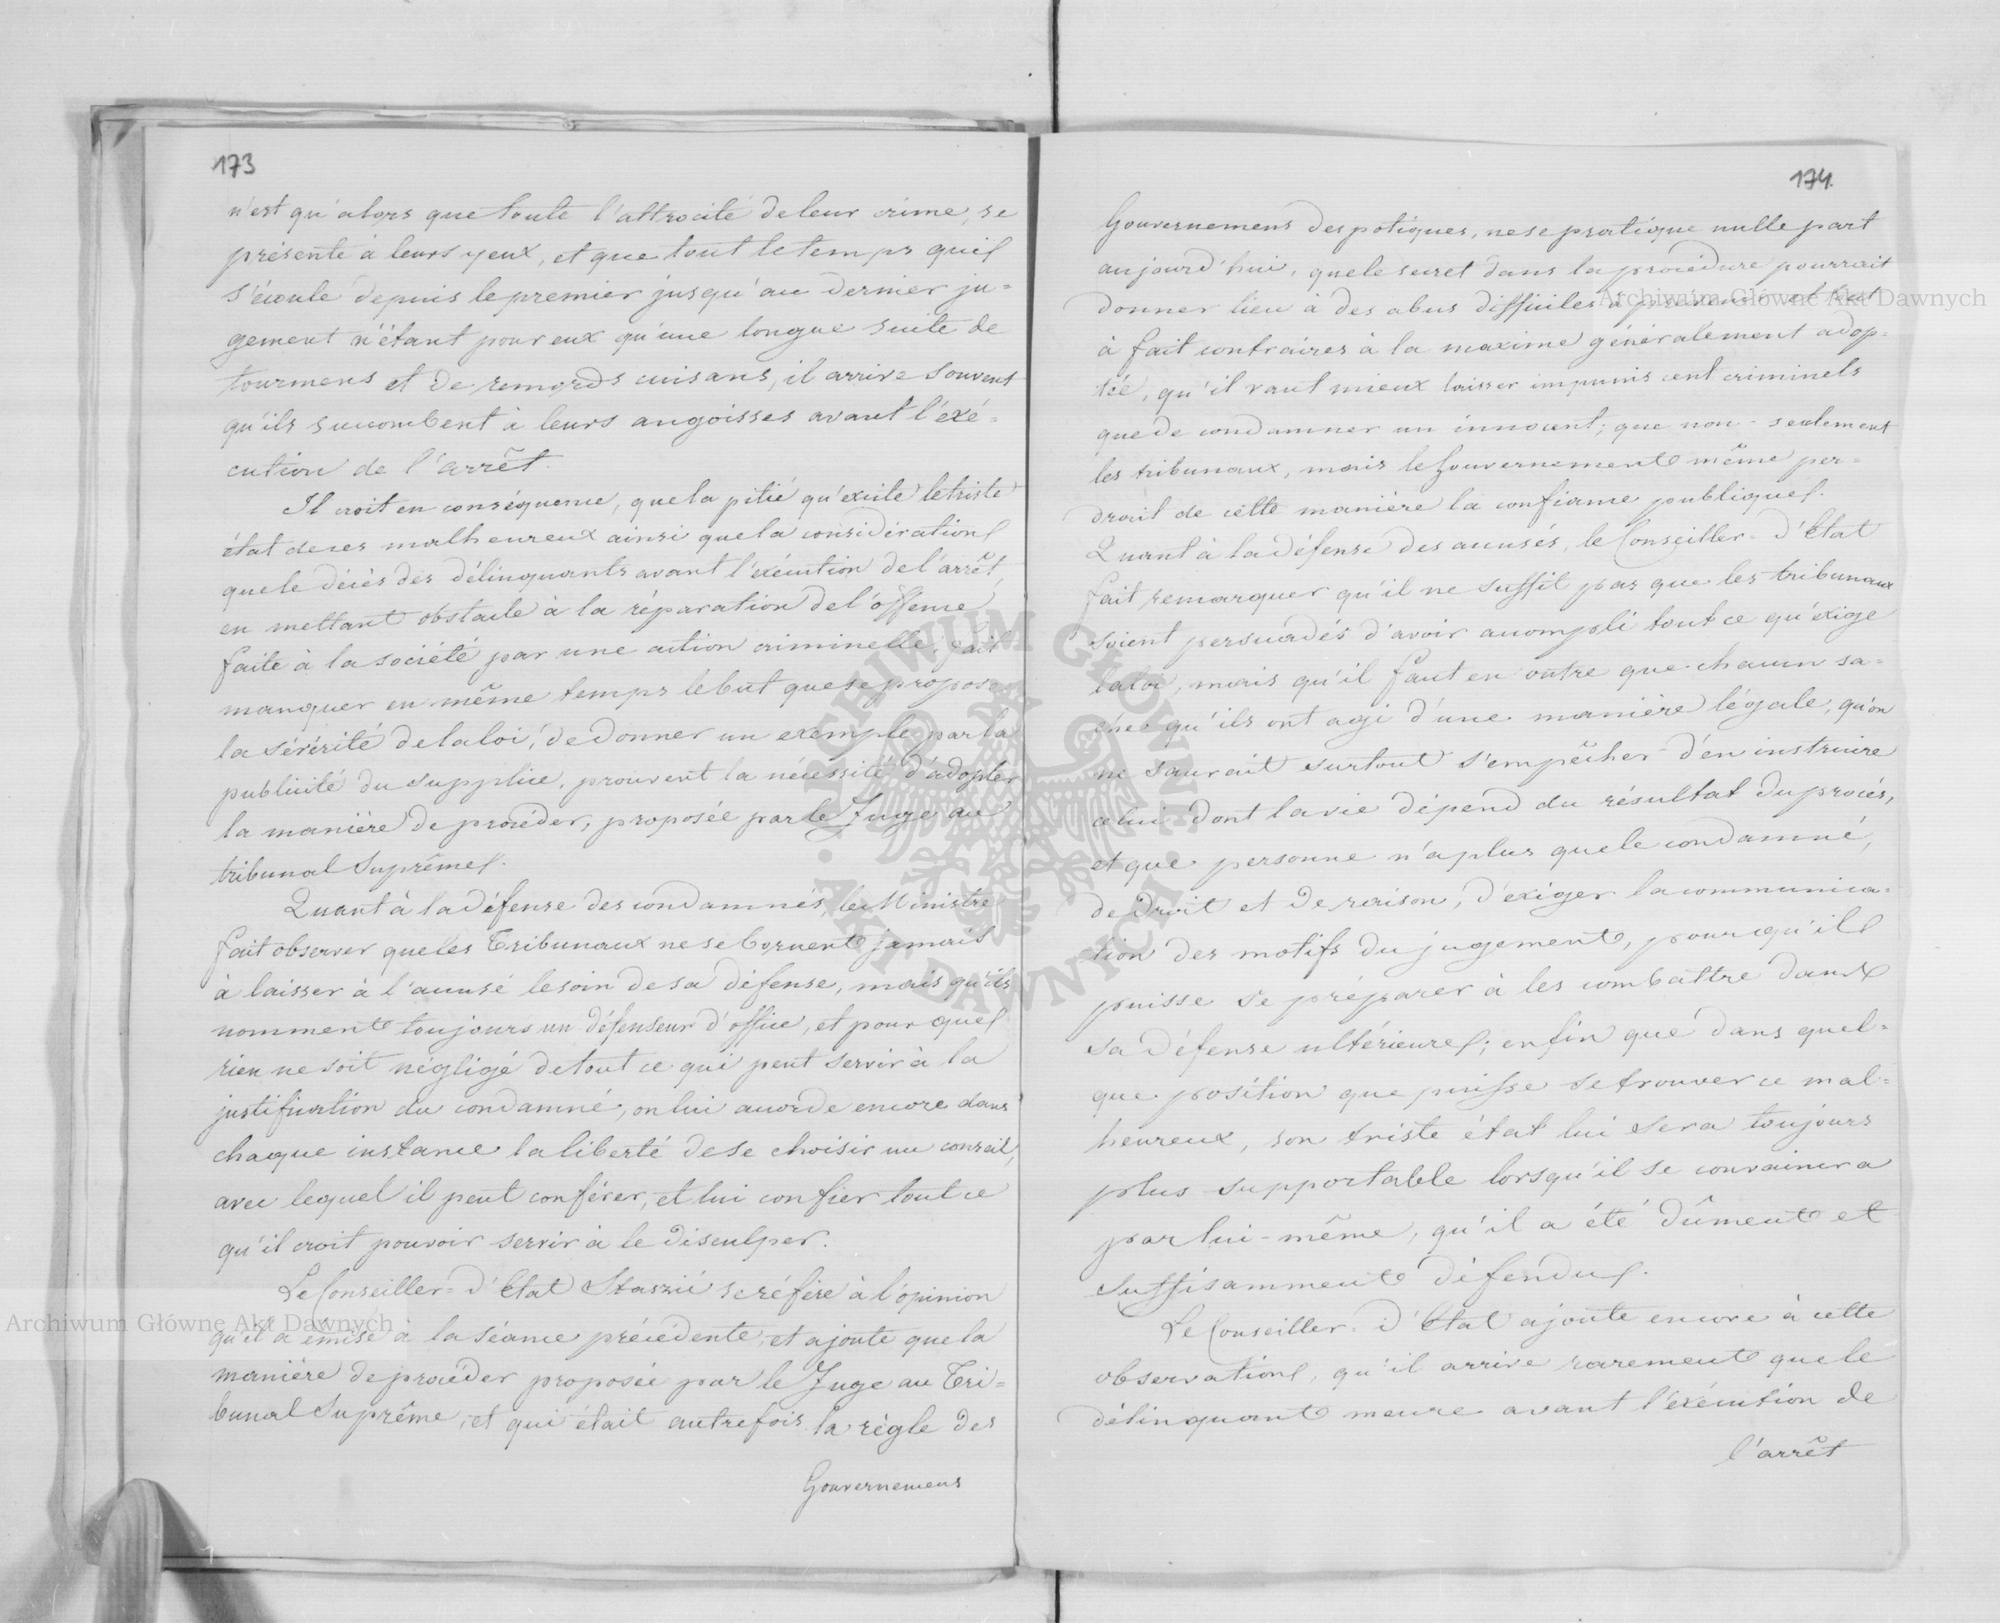 173
n'est qu'alors que toute l'attrocité de leur crime, se
présente à leurs yeux, et que tout le temps qui
s'écoule depuis le premier jusqu'au dernier ju-
gement n'étant pour eux qu'une longue suite de
tourmens et de remords cuisans, il arrive souvent
qu'ils succombent à leurs angoisses avant l'exé-
cution de l'arrêt.
Il croit en conséquence, que la pitié qu'excite le triste
état de ces malheureux ainsi que la considération
que le décès des délinquants avant l'exécution de l'arrêt,
en mettant obstacle à la réparation de l'offense
faite à la société par une action criminelle, fait
manquer en même temps le but que se propose
la sévérité de la loi, de donner un exemple par la
publicité du supplice, prouvent la nécessité d'adopter
la manière de procéder, proposée par le Juge au
tribunal Suprême.
Quant à la défense des condamnés, le Ministre
fait observer que les Tribunaux ne se bornent jamais
à laisser à l'accusé le soin de sa défense, mais qu'ils
nomment toujours un défenseur d'office, et pour que
rien ne soit négligé de tout ce qui peut servir à la
justification du condamné, on lui accorde encore dans
chaque instance la liberté de se choisir un conseil,
avec lequel il peut conférer, et lui confier tout ce
qu'il croit pouvoir servir à le disculper.
Le Conseiller-d'Etat Staszić se réfère à l'opinion
qu'il a émise à la séance précédente, et ajoute que la
manière de procéder proposée par le Juge au Tri-
bunal Suprême, et qui était autrefois la règle des
Gouvernemens
174.
Gouvernemens despotiques, ne se pratique nulle part
aujourd'hui, que le secret dans la procédure pourrait
donner lieu à des abus difficiles à prévenir et tout
à fait contraires à la maxime généralement adop-
tée, qu'il vaut mieux laisser impunis cent criminels
que de condamner un innocent; que non-seulement
les tribunaux, mais le Gouvernement même per-
drait de cette manière la confiance publique.
Quant à la défense des accusés, le Conseiller-d'Etat
fait remarquer qu'il ne suffit pas que les tribunaux
soient persuadés d'avoir accompli tout ce qu'exige
la loi, mais qu'il faut en outre que chacun sa-
che qu'ils ont agi d'une manière légale, qu'on
ne saurait surtout s'empêcher d'en instruire
celui dont la vie dépend du résultat du procès,
et que personne n'a plus que le condamné,
de droit et de raison, d'exiger la communica-
tion des motifs du jugement, pour qu'il
puisse se préparer à les combattre dans
sa défense ultérieure; enfin que dans quel-
que position que puisse se trouver ce mal-
heureux, son triste état lui sera toujours
plus supportable lorsqu'il se convaincra
par lui-même, qu'il a été dûment et
suffisamment défendu.
Le Conseiller-d'Etat ajoute encore à cette
observation, qu'il arrive rarement que le
délinquant meure avant l'exécution de
l'arrêt
Archiwum Główne Akt Dawnych
Archiwum Główne Akt Dawnych
ARCHIWUM GŁÓWNE · AKT DAWNYCH ·